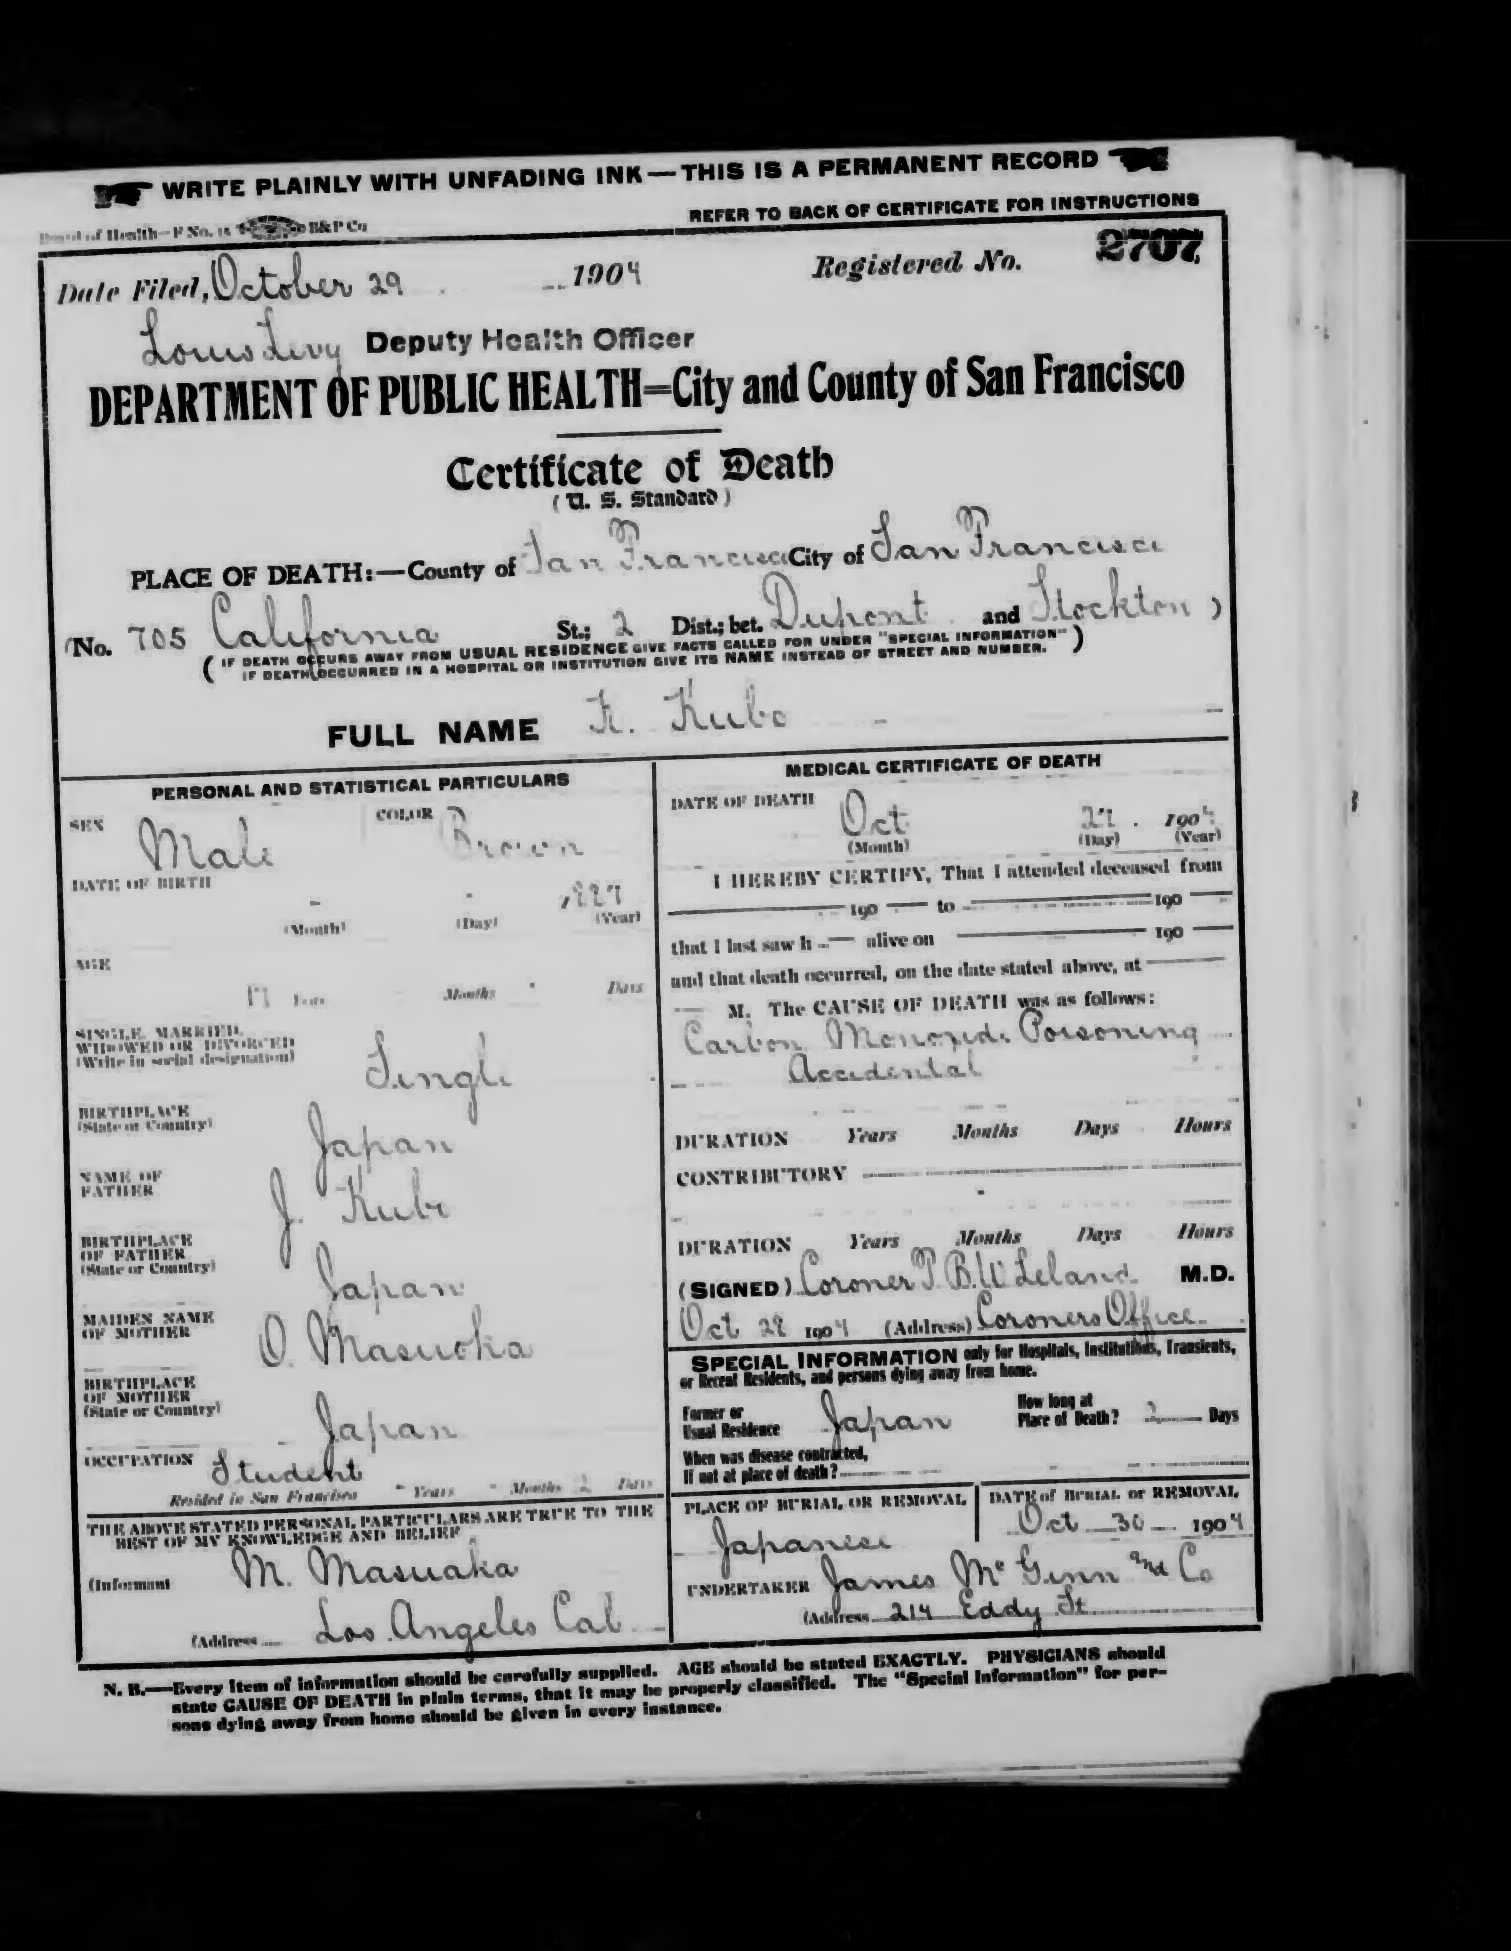 WRITE PLAINLY WITH UNFADING INK—THIS IS A PERMANENT RECORD
Board of Health—F No. 15 B&P Co
REFER TO BACK OF CERTIFICATE FOR INSTRUCTIONS
Date Filed, October 29 1904 Registered No. 2707
Louis Levy Deputy Health Officer
DEPARTMENT OF PUBLIC HEALTH=City and County of San Francisco
Certificate of Death
(U. S. Standard)
PLACE OF DEATH:—County of San Francisco City of San Francisco
(No. 705 California St.; 2 Dist.; bet. Dupont and Stockton )
( IF DEATH OCCURS AWAY FROM USUAL RESIDENCE GIVE FACTS CALLED FOR UNDER "SPECIAL INFORMATION" )
IF DEATH OCCURRED IN A HOSPITAL OR INSTITUTION GIVE ITS NAME INSTEAD OF STREET AND NUMBER.
FULL NAME K. Kubo
PERSONAL AND STATISTICAL PARTICULARS
SEX Male COLOR Brown
DATE OF BIRTH 1887
(Month) (Day) (Year)
AGE
17 Years Months Days
SINGLE, MARRIED,
WIDOWED OR DIVORCED
(Write in social designation)
Single
BIRTHPLACE
(State or Country)
Japan
NAME OF
FATHER
J. Kubo
BIRTHPLACE
OF FATHER
(State or Country)
Japan
MAIDEN NAME
OF MOTHER
O. Masuoka
BIRTHPLACE
OF MOTHER
(State or Country)
Japan
OCCUPATION Student
Resided in San Francisco - Years - Months 2 Days
THE ABOVE STATED PERSONAL PARTICULARS ARE TRUE TO THE
BEST OF MY KNOWLEDGE AND BELIEF
(Informant M. Masuaka
(Address Los Angeles Cal
MEDICAL CERTIFICATE OF DEATH
DATE OF DEATH Oct 27 1904
(Month) (Day) (Year)
I HEREBY CERTIFY, That I attended deceased from
190 to 190
that I last saw h alive on 190
and that death occurred, on the date stated above, at
M. The CAUSE OF DEATH was as follows:
Carbon Monoxide Poisoning
Accidental
DURATION Years Months Days Hours
CONTRIBUTORY
DURATION Years Months Days Hours
(SIGNED) Coroner T. B. W. Leland M.D.
Oct 28 1904 (Address) Coroners Office
SPECIAL INFORMATION only for Hospitals, Institutions, Transients,
or Recent Residents, and persons dying away from home.
Former or
Usual Residence Japan
How long at
Place of Death? 2 Days
When was disease contracted,
If not at place of death?
PLACE OF BURIAL OR REMOVAL
Japanese
DATE of BURIAL or REMOVAL
Oct 30 1904
UNDERTAKER James McGinn and Co
(Address 214 Eddy St
N. B.—Every item of information should be carefully supplied. AGE should be stated EXACTLY. PHYSICIANS should
state CAUSE OF DEATH in plain terms, that it may be properly classified. The "Special Information" for per-
sons dying away from home should be given in every instance.